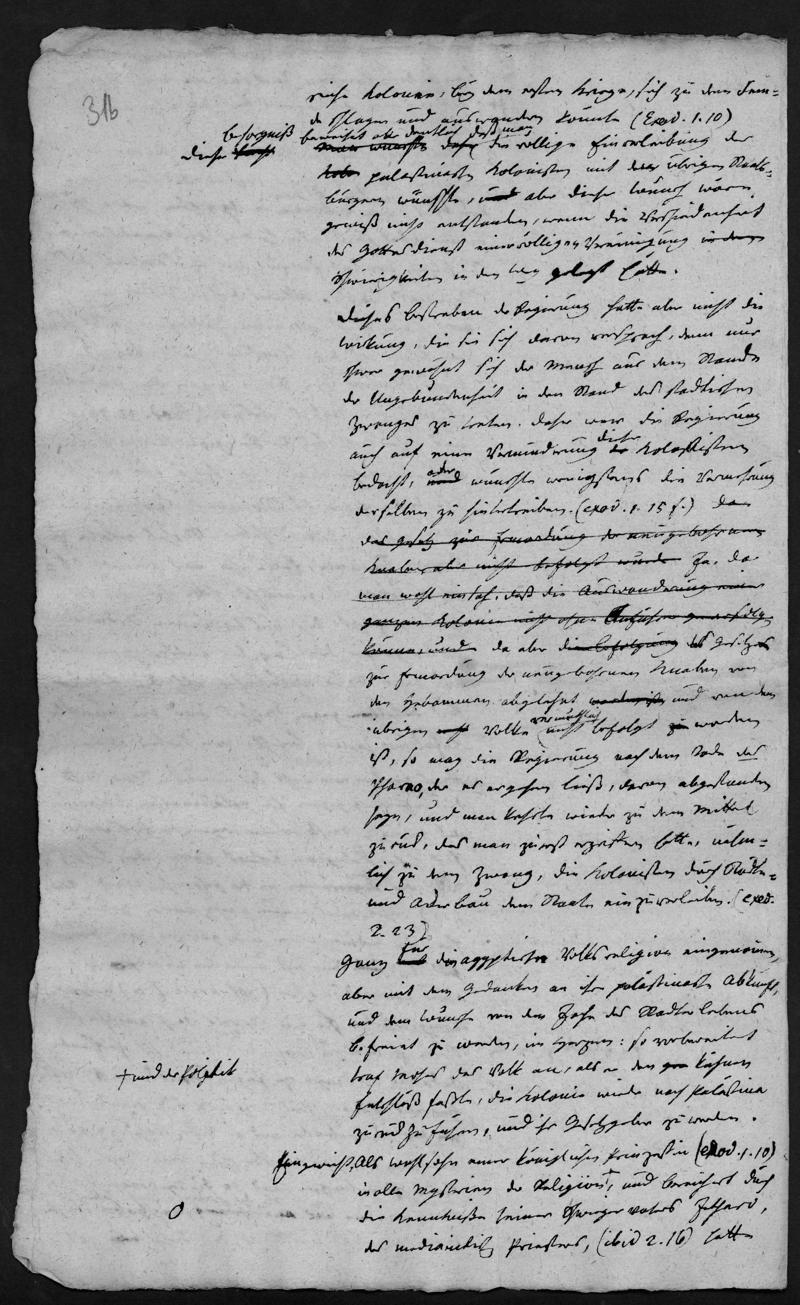 31b
reiche Kolonie, bey dem ersten Kriege, sich zu dem Fein=
de schlagen und auswandern könnte (Exod. 1. 10)
Besorgniß beweiset also deutlich daß man
Diese die völlige Einverleibung der
palästinischen Kolonisten mit den übrigen Staats=
bürgern wünschte, und aber dieser Wunsch wäre
gewiß nicht entstanden, wenn die Verschiedenheit
des Gottesdienst einer völligen Vereinigung
Schwierigkeiten in den Weg gelegt hätte.
Dieses Bestreben der Regierung hatte aber nicht die
Wirkung, die sie sich davon versprach, denn nur
schwer gewöhnt sich der Mensch aus dem Stande
der Ungebundenheit in den Stand des städtischen
Zwanges zu treten. Daher war die Regierung
auch auf eine Verminderung dieser Kolonisten
bedacht, oder wünschte wenigstens die Vermehrung
derselben zu hintertreiben. (exod. 1. 15 f.) da
das Gesetz zur Ermordung der neugebohrnen
Knaben aber nicht befolgt wurde Ja, da
man wohl einsah, daß die Auswanderung einer
ganzen Kolonie nicht ohne Aufsehen
könne, und da aber die Befolgung des Gesetzes
zur Ermordung der neugebohrnen Knaben von
den Hebammen abgelehnt und von dem
übrigen Volke vermuthlich nicht befolgt worden
ist, so mag die Regierung nach dem Tode des
Pharao, der es ergehen ließ, davon abgestanden
seyn, und man kehrte wieder zu dem Mittel
zurück, das man zuerst ergriffen hatte, näm=
lich zu dem Zwang, die Kolonisten durch Städte=
und Ackerbau dem Staate einzuverleiben. (exod.
2. 23)
Ganz für die aegyptische Volksreligion eingenommen,
aber mit dem Gedanken an ihre palästinische Abkunft,
und dem Wunsche von dem Joche des Städterlebens
befreiet zu werden, im Herzen: so vorbereitet
traf Moses das Volk an, als er den kühnen
Entschluß faßte, die Kolonie wieder nach Palästina
zurück zu führen, und ihr Gesetzgeber zu werden.
Eingeweiht, als Wahlsohn einer königlichen Prinzessin (exod. 1. 10)
in alle Mysterien der Religion†, und bereichert durch
† und der Politik
die Kenntnisse seines Schwiegervaters Jethro,
des medianitisch Priesters, (ibid 2. 16) hatte